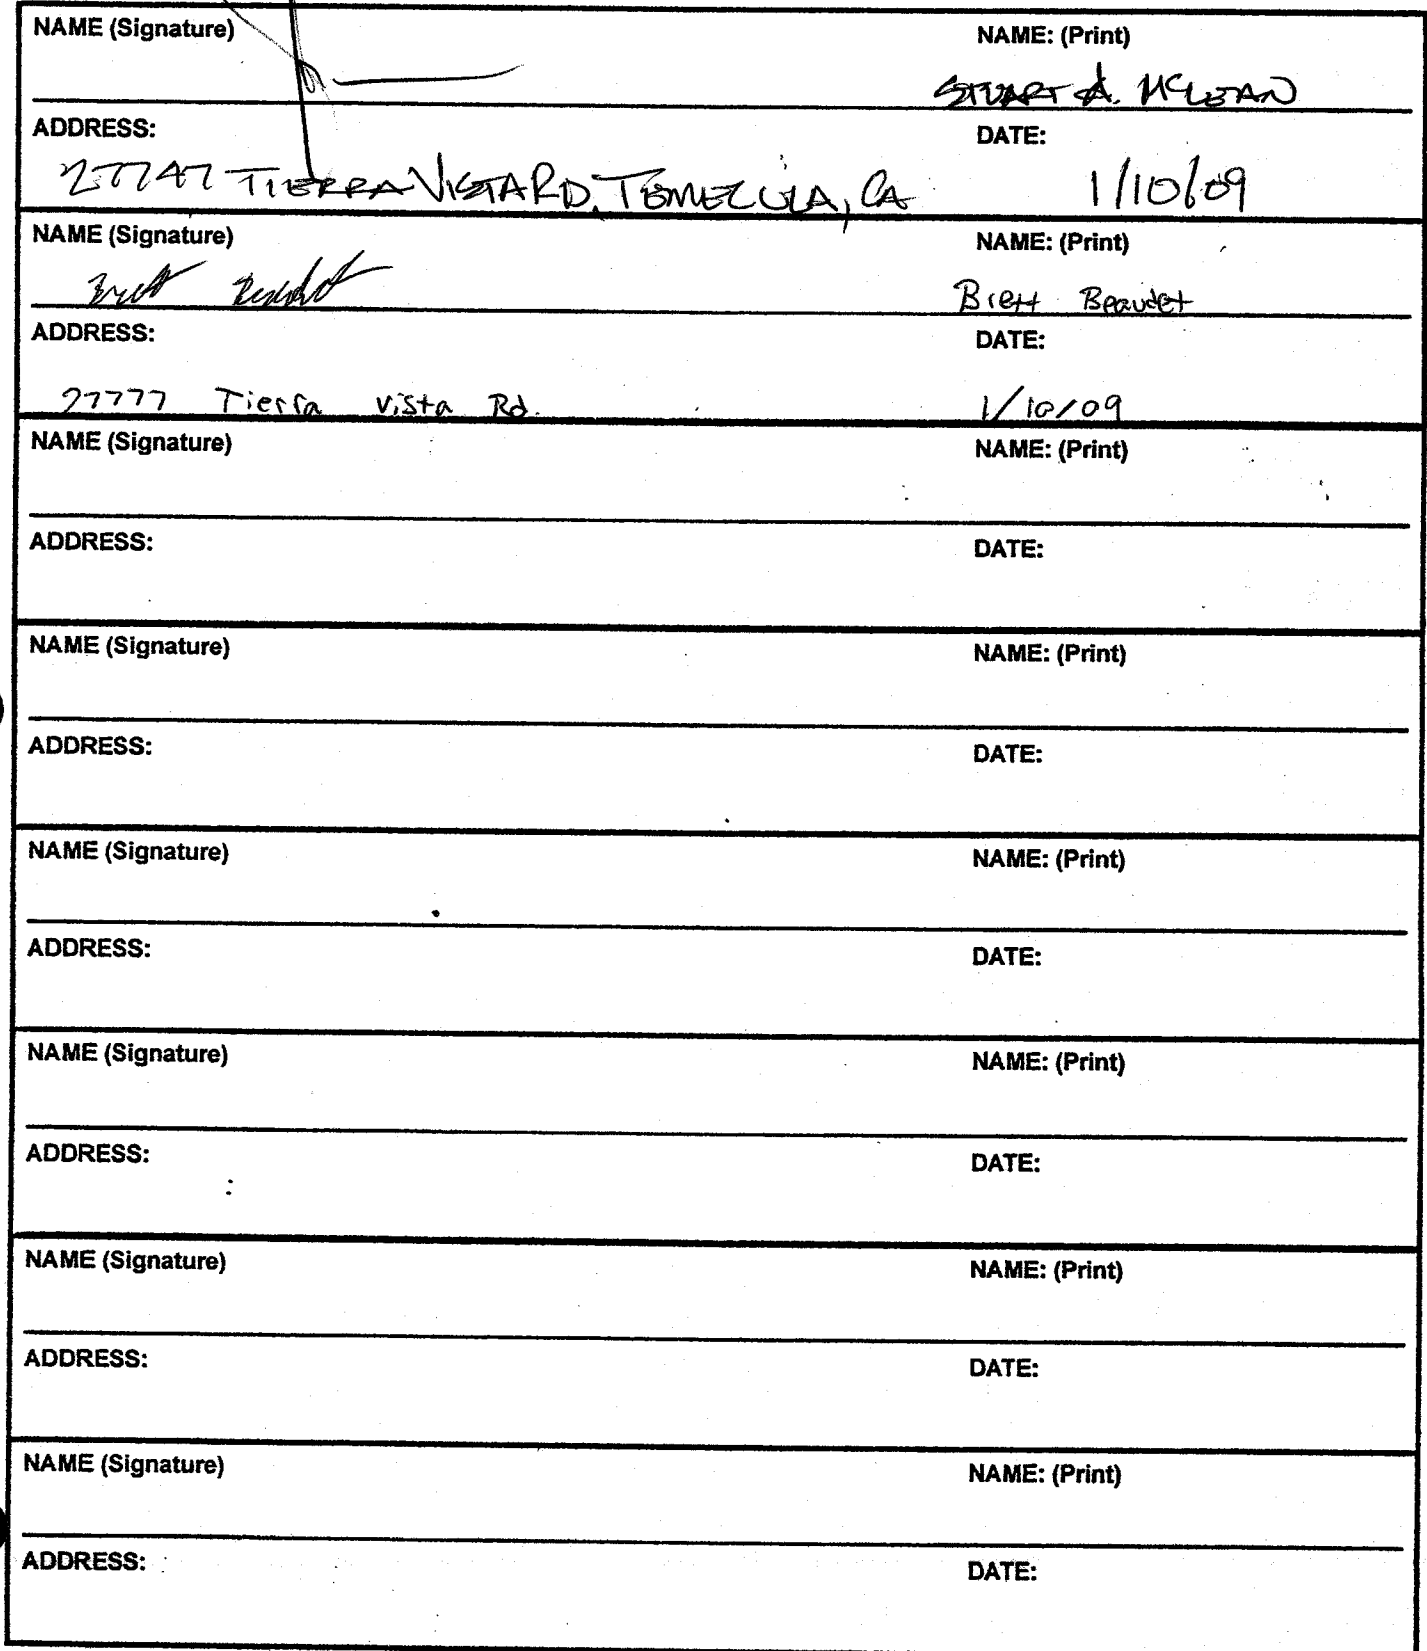 NAME (Signature) NAME: (Print)
STUART A. MCLEAN
ADDRESS: DATE:
27747 TIERRA VISTA RD, TEMECULA, CA 1/10/09
NAME (Signature) NAME: (Print)
Brett Beaudet Brett Beaudet
ADDRESS: DATE:
27777 Tierra Vista Rd. 1/10/09
NAME (Signature) NAME: (Print)
ADDRESS: DATE:
NAME (Signature) NAME: (Print)
ADDRESS: DATE:
NAME (Signature) NAME: (Print)
ADDRESS: DATE:
NAME (Signature) NAME: (Print)
ADDRESS: DATE:
NAME (Signature) NAME: (Print)
ADDRESS: DATE:
NAME (Signature) NAME: (Print)
ADDRESS: DATE: